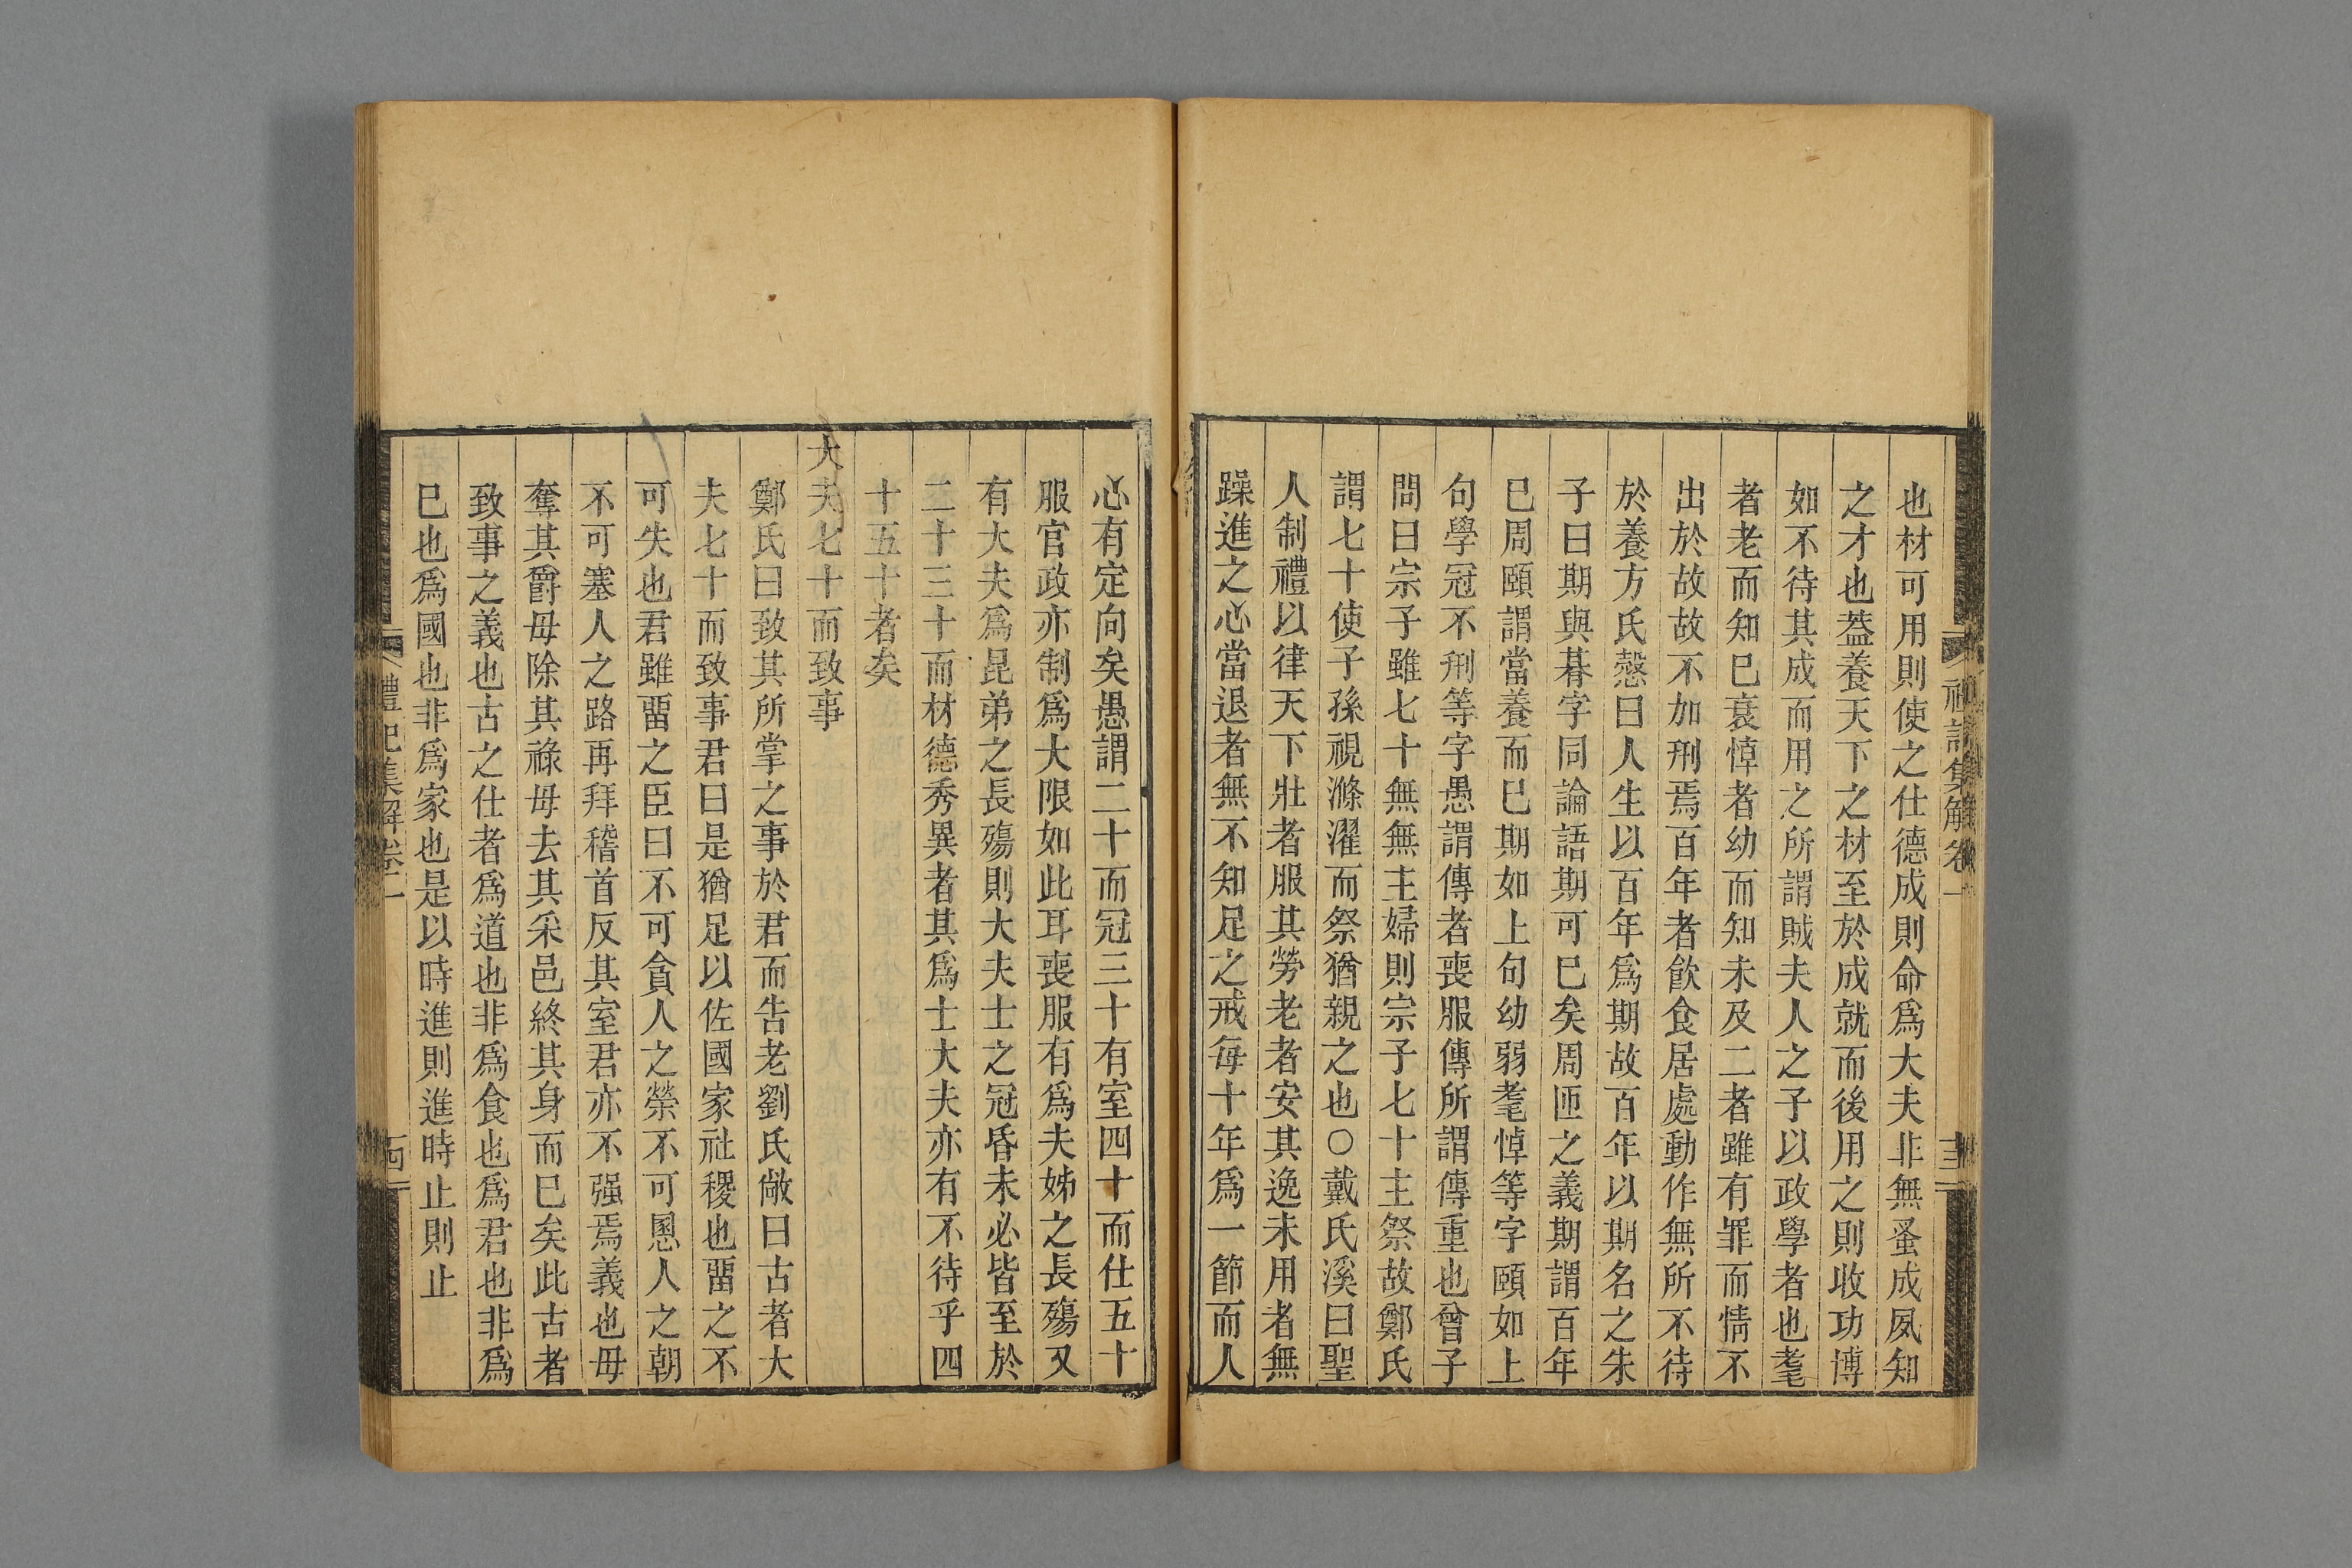 禮記集解卷一
十三
也材可用則使之仕德成則命爲大夫非無蚤成夙知
之才也葢養天下之材至於成就而後用之則收功博
如不待其成而用之所謂賊夫人之子以政學者也耄
者老而知已衰悼者幼而知未及二者雖有罪而情不
出於故故不加刑焉百年者飮食居處動作無所不待
於養方氏慤曰人生以百年爲期故百年以期名之朱
子曰期與朞字同論語期可已矣周匝之義期謂百年
已周頤謂當養而已期如上句幼弱耄悼等字頤如上
句學冠不刑等字愚謂傳者喪服傳所謂傳重也曾子
問曰宗子雖七十無無主婦則宗子七十主祭故鄭氏
謂七十使子孫視滌濯而祭猶親之也○戴氏溪曰聖
人制禮以律天下壯者服其勞老者安其逸未用者無
躁進之心當退者無不知足之戒每十年爲一節而人
心有定向矣愚謂二十而冠三十有室四十而仕五十
服官政亦制爲大限如此耳喪服有爲夫姊之長殤又
有大夫爲昆弟之長殤則大夫士之冠昏未必皆至於
二十三十而材德秀異者其爲士大夫亦有不待乎四
十五十者矣
大夫七十而致事
鄭氏曰致其所掌之事於君而告老劉氏敞曰古者大
夫七十而致事君曰是猶足以佐國家社稷也畱之不
可失也君雖畱之臣曰不可貪人之榮不可慁人之朝
不可塞人之路再拜稽首反其室君亦不强焉義也毋
奪其爵毋除其祿毋去其采邑終其身而已矣此古者
致事之義也古之仕者爲道也非爲食也爲君也非爲
已也爲國也非爲家也是以時進則進時止則止
禮記集解卷一
十四